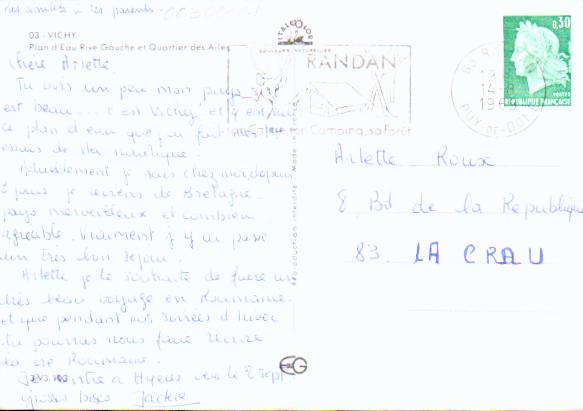 amitiés à tes parents.
03 - VICHY
Plan d'Eau Rive Gauche et Quartier des Ailes
Chère Arlette
Tu vois un peu mon pays s'il
est beau. c'est Vichy et c'est sur
ce plan d'eau que j'ai fait mes
essais de ski nautique.
Actuellement je suis chez moi depuis
3 jours je reviens de Bretagne.
pays merveilleux et combien
agréable. Vraiment j'y ai passé
un très bon séjour.
Arlette je te souhaite de faire un
très beau voyage en Roumanie.
et que pendant nos soirées d'hiver
tu pourras nous faire revivre
la vie Roumaine.
Je rentre à Hyères vers le 2 sept
grosses bises Jackie
Reproduction interdite
EG
RANDAN
Camping, sa Forêt
0,30
REPUBLIQUE FRANÇAISE
POSTES
63 R
14-8
PUY-DE-DOME
Arlette Roux
8 Bd de la République
83. LA CRAU